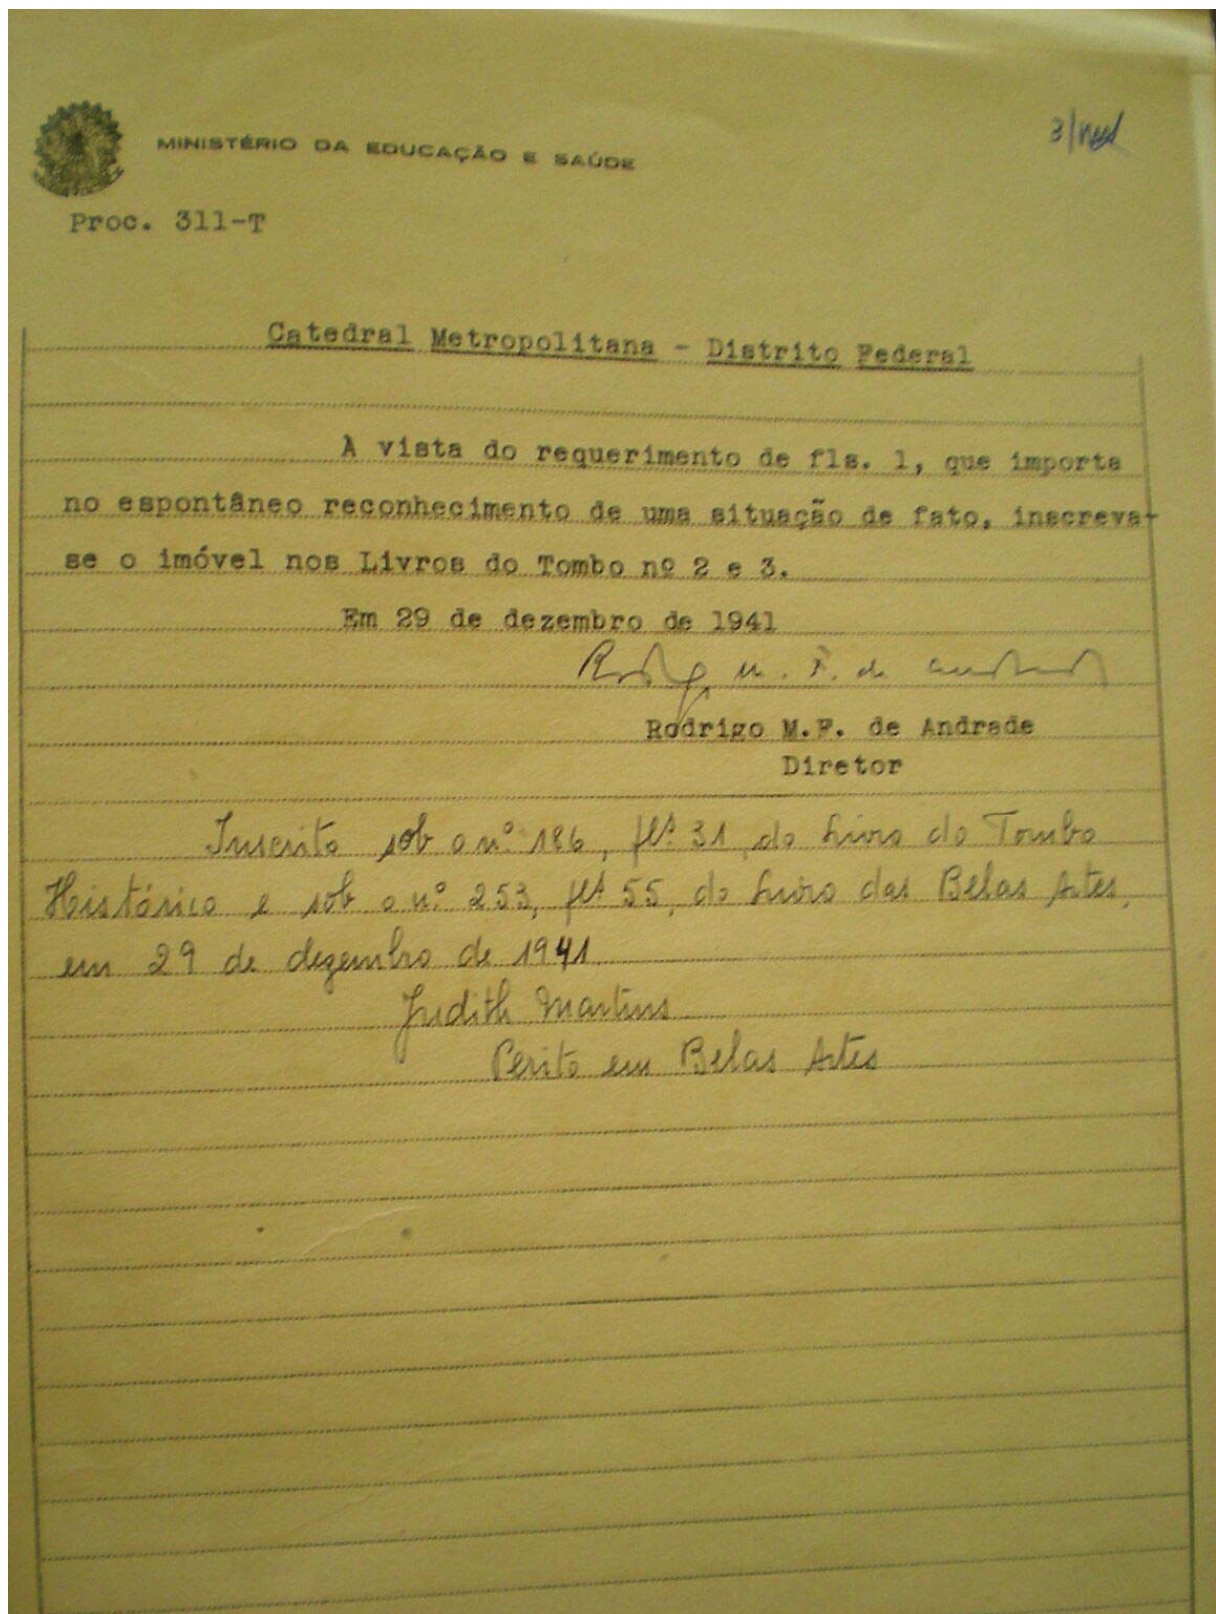 MINISTÉRIO DA EDUCAÇÃO E SAÚDE
Proc. 311-T
Catedral Metropolitana - Distrito Federal
A vista do requerimento de fls. 1, que importa
no espontâneo reconhecimento de uma situação de fato, inscreva-
se o imóvel nos Livros do Tombo nº 2 e 3.
Em 29 de dezembro de 1941
Rodrigo M. F. de Andrade
Rodrigo M.F. de Andrade
Diretor
Inscrito sob o nº 186, fls 31, do Livro do Tombo
Histórico e sob o nº 253, fls 55, do Livro das Belas Artes,
em 29 de dezembro de 1941.
Judith Martins
Perito em Belas Artes